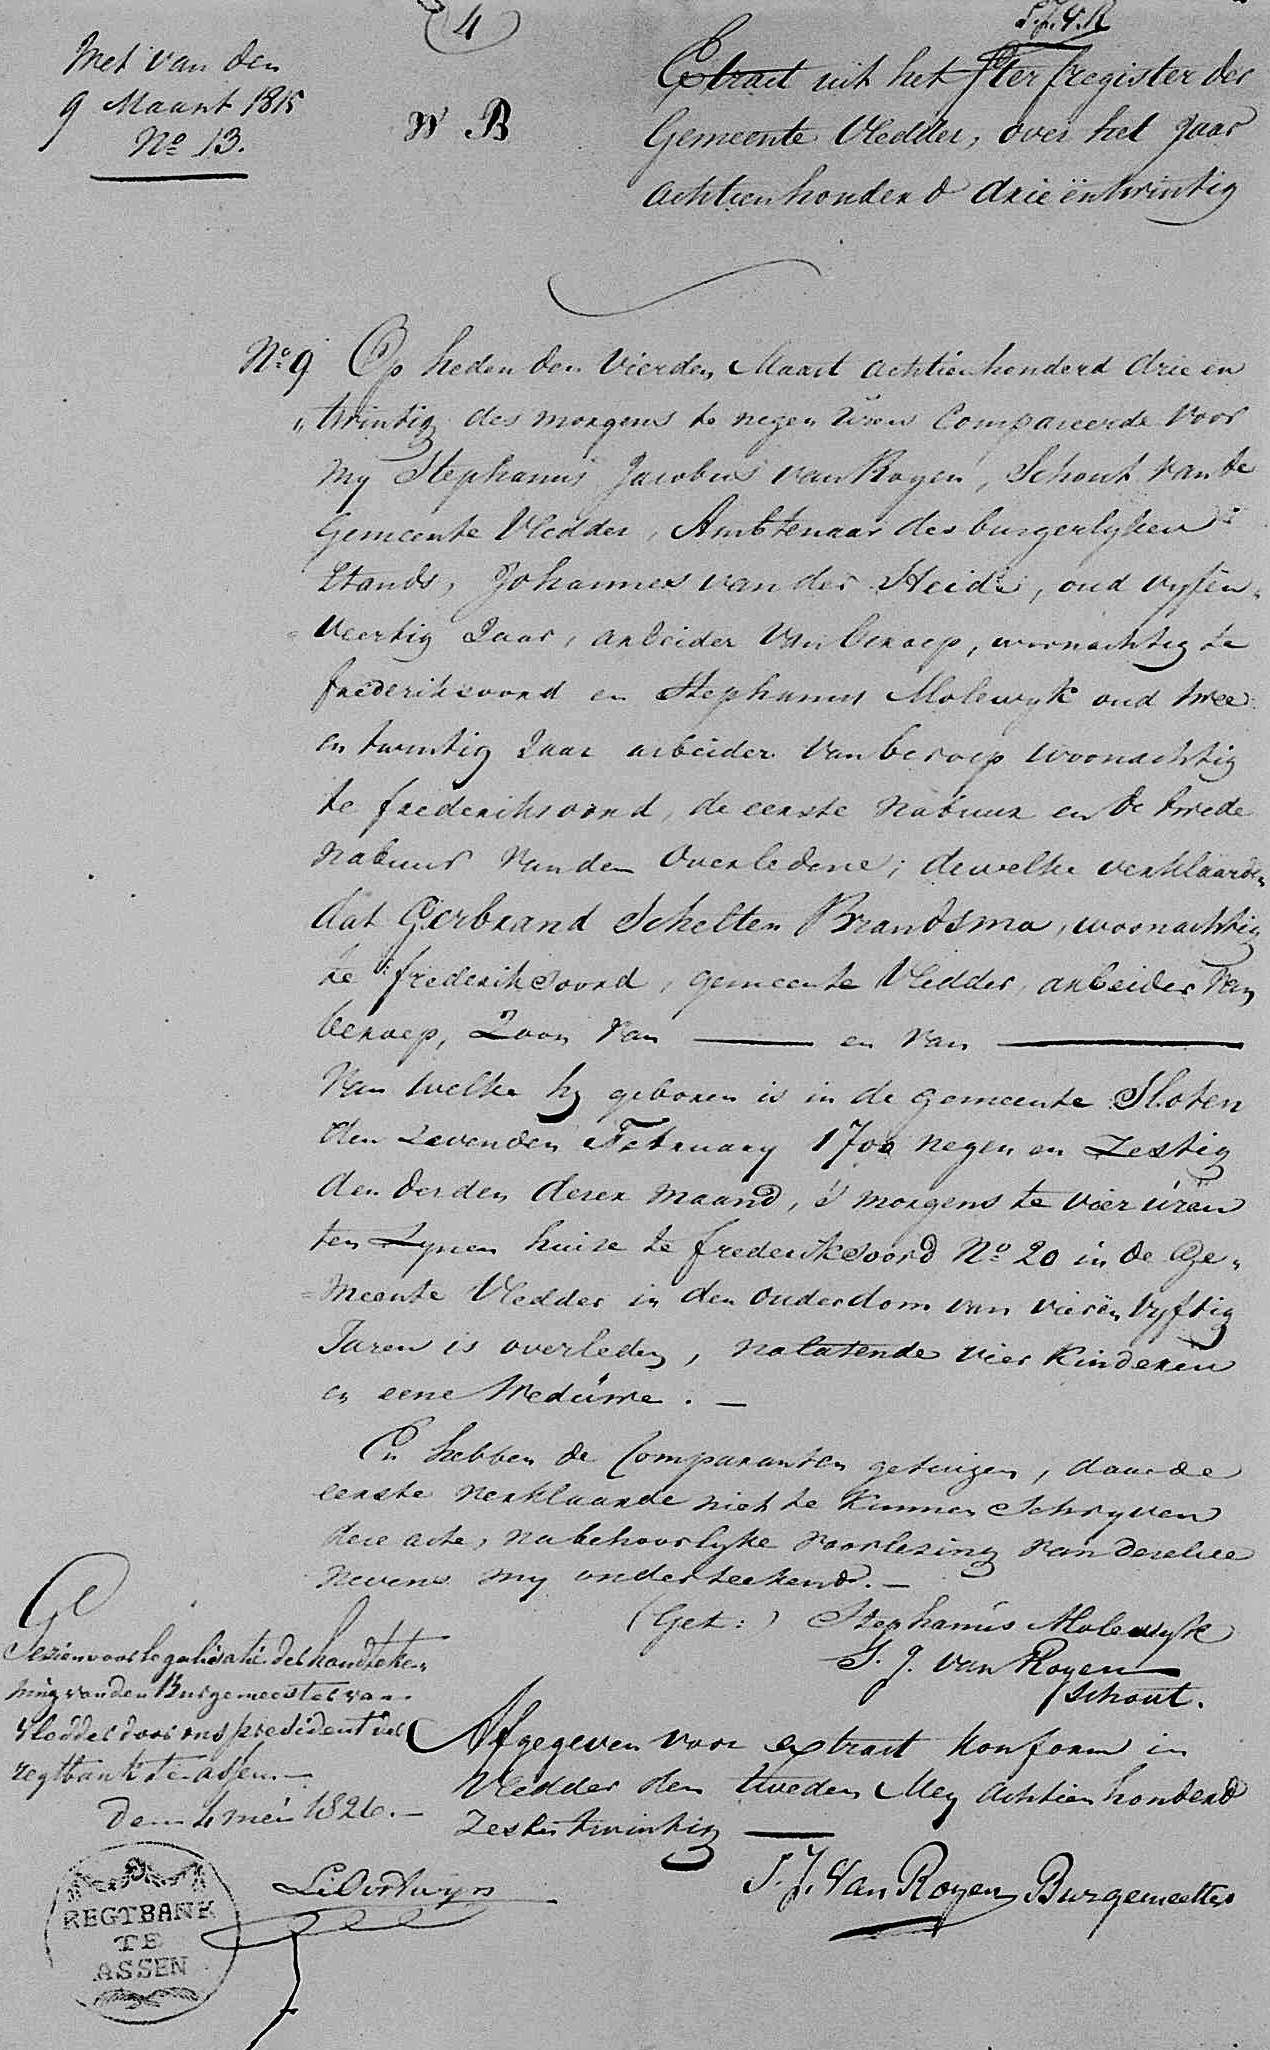 4
S.J.V.R
Met van den
9 Maart 1815
No 13.
B
Extract uit het sterfregister der
Gemeente Vledder, over het Jaar
achtienhonderd drieëntwintig
No 9 Op heden den Vierden Maart achtienhonderd drie en
„twintig des morgens te negen uren Compareerde voor
my Stephanus Jacobus van Royen, Schout van de
Gemeente Vledder, Ambtenaar des burgerlyken
Stands, Johannes van der Heide, oud vyfen„
veertig Jaar, arbeider van beroep, woonachtig te
frederiksoord en Stephanus Molewyk oud twee
en twintig Jaar arbeider van beroep woonachtig
te frederiksoord, de eerste nabuur en de twede
nabuur van den Overledene; dewelke verklaarden
dat Gerbrand Schelten Brandsma, woonachtig
te frederiksoord, gemeente Vledder, arbeider van
beroep, Zoon van —— en van ——
Van welke hy geboren is in de gemeente Sloten
den Zevenden February 1700 negen en Zestig
den derden dezer maand, 's morgens te vier uren
ten Zynen huize te frederiksoord No 20 in de Ge„
meente Vledder in den ouderdom van vierën vyftig
Jaren is overleden, nalatende vier Kinderen
en eene Weduwe. —
En hebben de Comparanten getuigen, daar de
eerste verklaarde niet te kunnen Schryven
deze acte, na behoorlyke voorlezing van dezelve
nevens my onderteekend. —
(Get:) Stephanus Molewyk
S. J. van Royen
Schout.
Gezien voor legalisatie der handteke„
ning van den Burgemeester van
Vledder door ons president der
regtbank te Assen. —
den 4 mei 1826. —
Afgegeven voor extract konform in
Vledder den tweeden Mey achtienhonderd
Zesentwintig ——
S. J. Van Royen Burgemeester
REGTBANK
TE
ASSEN